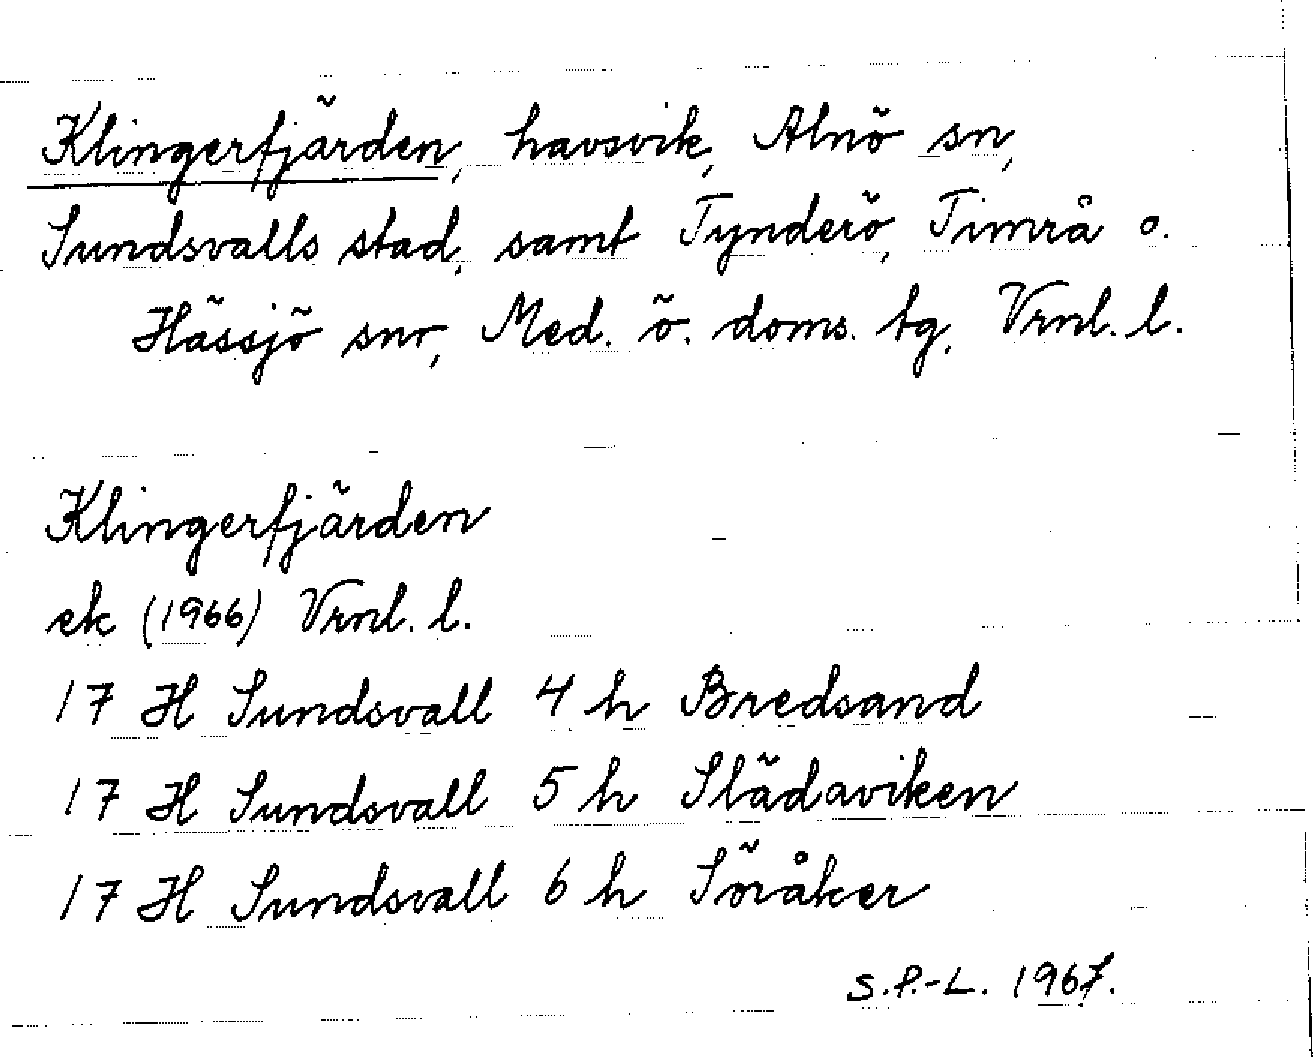 Klingerfjärden, havsvik, Alnö sn,
Sundsvalls stad, samt Tynderö, Timrå o.
Hässjö snr, Med. ö. doms. tg, Vrnl. l.
Klingerfjärden
ek (1966) Vrnl. l.
17 H Sundsvall 4 h Bredsand
17 H Sundsvall 5 h Slädaviken
17 H Sundsvall 6 h Söråker
S.P.-L. 1967.